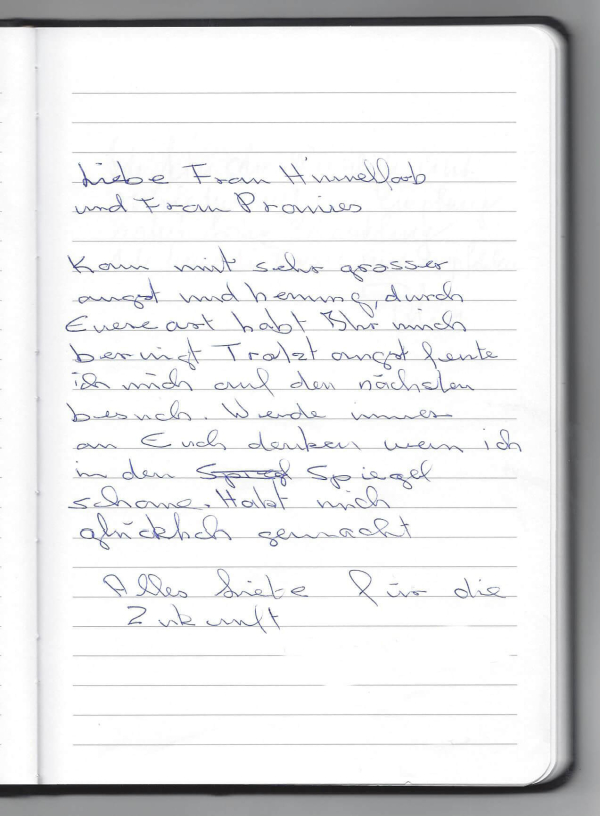 Liebe Frau Himmelfarb
und Frau Pramies
Kam mit sehr grosser
angst und hemung, durch
Euere art habt Ihr mich
beruigt Tratzt angst freute
ich mich auf den nächsten
besuch. Werde immer
an Euch denken wenn ich
in den Spiegel
schaue. Habt mich
glücklich gemacht
Alles Liebe für die
Zukunft